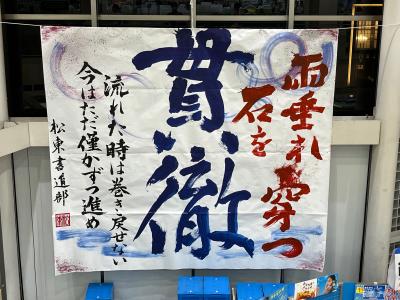 雨垂れ
石を
穿つ
貫徹
流れた時は巻き戻せない
今はただ僅かずつ進め
松東書道部